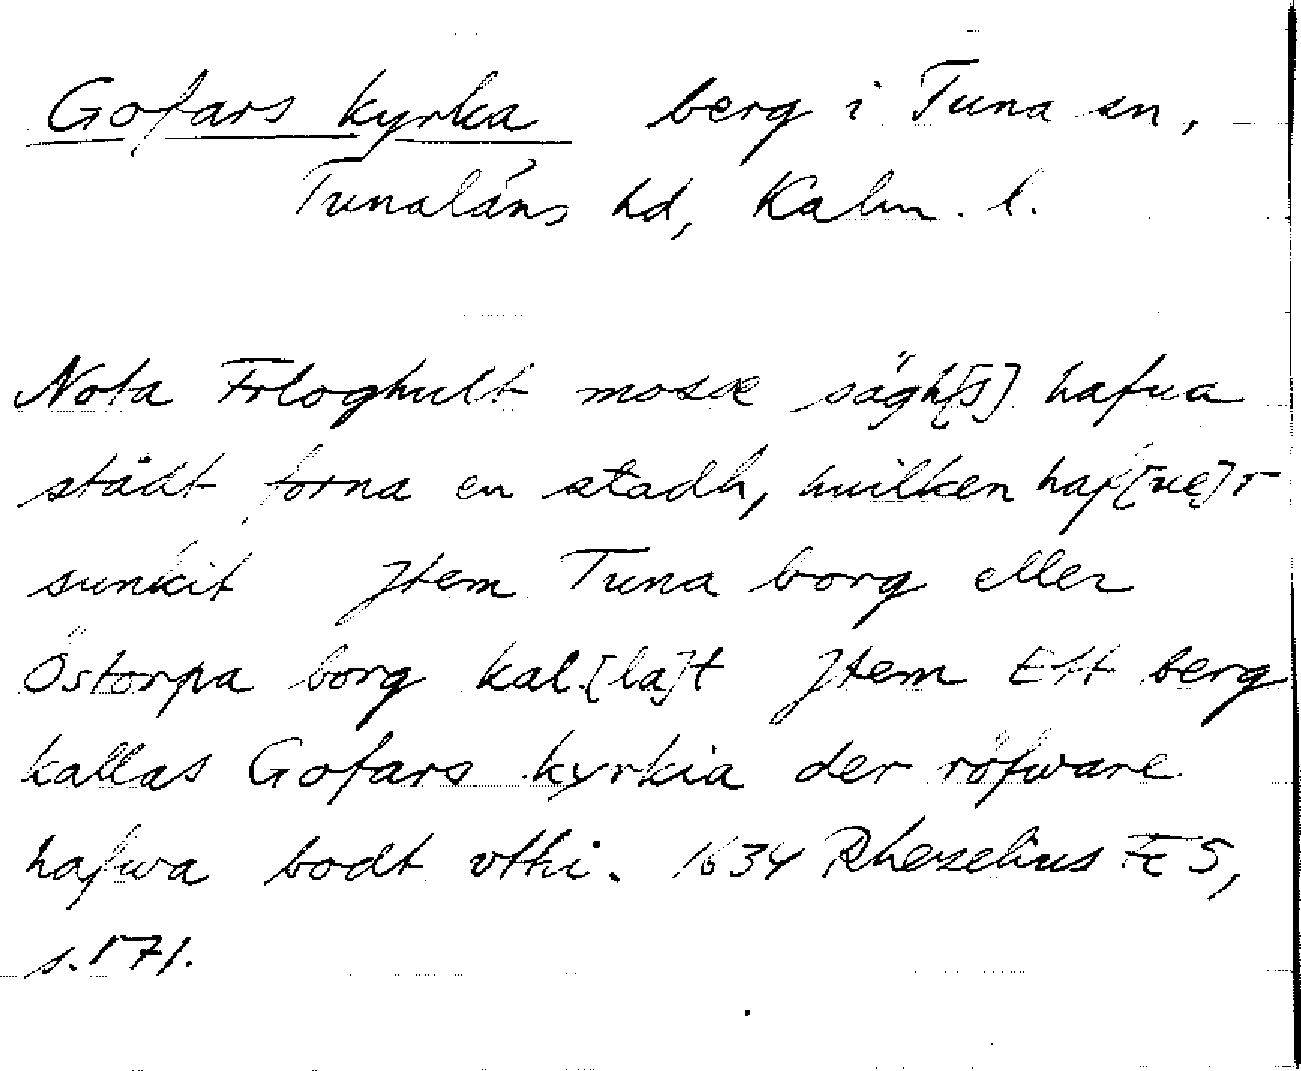 Gofars kyrka berg i Tuna sn,
Tunaläns hd, Kalm. l.
Nota Frologhult mosse sägh[s] hafua
stådt forna en stadh, huilken haf[ue]r
sunkit Jtem Tuna borg eller
Östorpa borg kal.[la]t Jtem Ett berg
kallas Gofars kyrkia der röfware
hafwa bodt vthi. 1634 Rhezelius Fc 5,
s. 171.